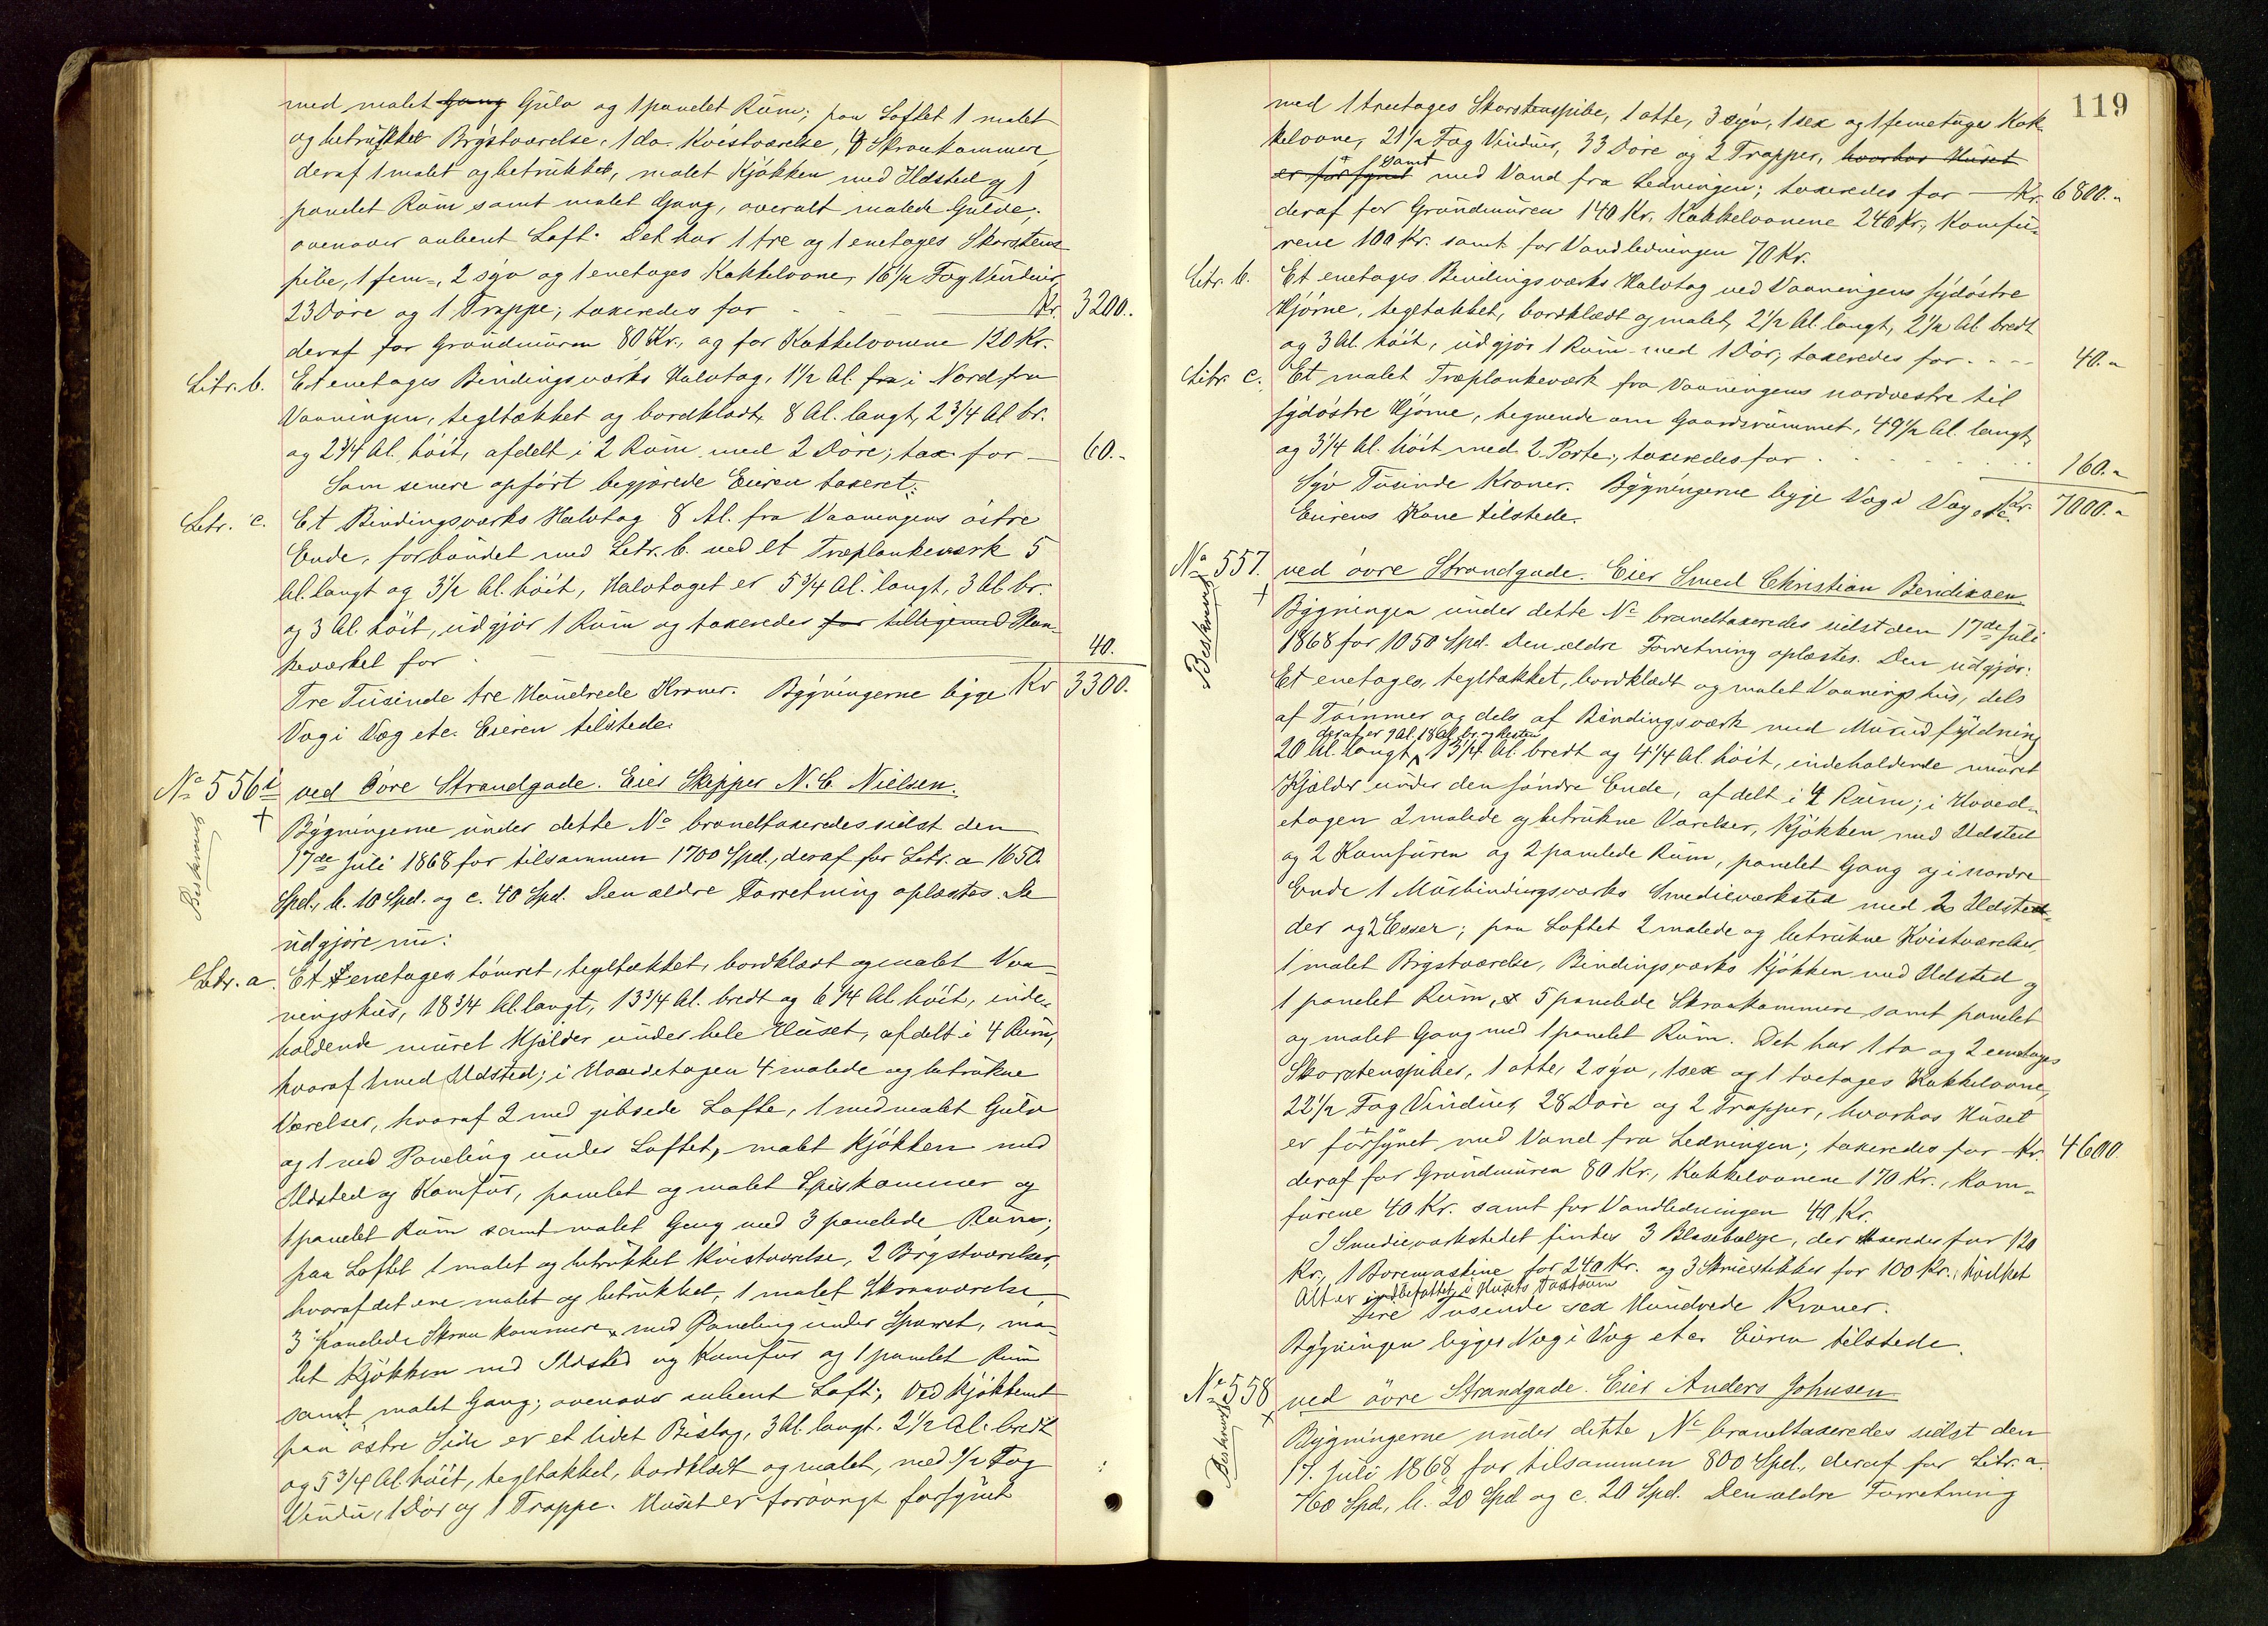 med malet Gang Gulv og 1 panelet Rüm; paa Loftet 1 malet
og betrükket Brystværelse, 1 do. Kvistværelse, 4 Skraakammere,
deraf 1 malet og betrükket, malet Kjøkken med Ildsted og 1
panelet Rüm samt malet Gang, overalt malede Gulve;
ovenover aabent Loft. Det har 1 tre og 1 enetages Skorstens
pibe, 1 fem-, 2 syv og 1 enetages Kakkelovne, 16 1/2 Fag Vindüer,
23 Døre og 1 Trappe; taxeredes for Kr. 3200.
deraf for Gründmüren 80 Kr., og for Kakkelovnene 120 Kr.
Litr. b. Et enetages Bindingsværks Halvtag, 1 1/2 Al. fra i Nord fra
Vaaningen, tegltækket og bordklædt, 8 Al. langt, 2 3/4 Al br.
og 2 3/4 Al. høit, afdelt i 2 Rüm med 2 Døre; tax. for 60.-
Som senere opført begjærede Eieren taxeret:
Litr. c. Et Bindingsværks Halvtag 8 Al. fra Vaaningens østre
Ende, forbündet med Litr. b. ved et Træplankeværk 5
Al. langt og 3 1/2 Al. høit, Halvtaget er 5 3/4 Al. langt, 3 Al. br.
og 3 Al. høit, üdgjør 1 Rüm og taxeredes for tilligemed Plan-
keværket for 40.
Tre Tüsinde tre Hündrede Kroner. Bygningerne ligge Kr 3300.
Væg i Væg etc. Eieren tilstede.
No 556 i ved Øvre Strandgade. Eier Skipper N. C. Nielsen.
Beskrevet +
Bygningerne ünder dette No brandtaxeredes sidst den
17de Jüli 1868 for tilsammen 1700 Spd., deraf for Litr. a 1650
Spd., b. 10 Spd. og c. 40 Spd. Den ældre Forretning oplæstes. De
üdgjøre nü:
Litr. a. Et enetages, tømret, tegltækket, bordklædt og malet Vaa-
ningshüs, 18 3/4 Al. langt, 13 3/4 Al. bredt og 6 1/4 Al. høit, inde-
holdende müret Kjælder ünder hele Hüset, afdelt i 4 Rüm,
hvoraf 1 med Ildsted; i Hovedetagen 4 malede og betrükne
Værelser, hvoraf 2 med gibsede Lofte, 1 med malet Gulv
og 1 med Paneling ünder Loftet, malet Kjøkken med
Ildsted og Komfür, panelet og malet Spiskammer og
1 panelet Rüm samt malet Gang med 3 panelede Rüm;
paa Loftet 1 malet og betrükket Kvistværelse, 2 Brystværelser,
hvoraf det ene malet og betrükket, 1 malet Skraaværelse,
3 panelede Skraakammere med Paneling ünder Sparret, ma-
let Kjøkken med Ildsted og Komfür og 1 panelet Rüm
samt malet Gang; ovenover aabent Loft; Ved Kjøkkenet
paa østre Side er et lidet Bislag, 3 Al. langt, 2 1/2 Al. bredt
og 5 3/4 Al. høit, tegltækket, bordklædt og malet, med 1/2 Fag
Vindü, 1 Dør og 1 Trappe. Hüset er forøvrigt forsynet
119
med 1 treetages Skorstenspibe, 1 otte, 3 syv, 1 sex og 1 femetages Kak-
kelovne, 21 1/2 Fag Vindüer, 33 Døre og 2 Trapper, hvorhos Hüset
er forsynet samt med Vand fra Ledningen; taxeredes for Kr. 6800.-
deraf for Gründmüren 140 Kr. Kakkelovnene 240 Kr., Komfü-
rene 100 Kr. samt for Vandledningen 70 Kr.
Litr. b. Et enetages Bindingsværks Halvtag ved Vaaningens sydøstre
Hjørne, tegltækket, bordklædt og malet, 2 1/2 Al. langt, 2 1/2 Al. bredt
og 3 Al. høit, üdgjør 1 Rüm med 1 Dør, taxeredes for 40.-
Litr. c. Et malet Træplankeværk fra Vaaningens nordvestre til
sydøstre Hjørne, hegnende om Gaardsrümmet, 49 1/2 Al. langt,
og 3 1/4 Al. høit med 2 Porte, taxeredes for 160.-
Syv Tüsinde Kroner. Bygningerne ligge Væg i Væg etc. Kr. 7000.-
Eierens Kone tilstede.
No 557. ved øvre Strandgade. Eier Smed Christian Bendixsen
Beskrevet +
Bygningen ünder dette No brandtaxeredes sidst den 17de Jüli
1868 for 1050 Spd. Den ældre Forretning oplæstes. Den üdgjør:
Et enetages, tegltækket, bordklædt og malet Vaaningshüs, dels
af Tømmer og dels af Bindingsværk med Mürüdfyldning
deraf er 9 Al. 18 Al. br. og Resten
20 Al. langt, 13 1/4 Al. bredt og 4 1/4 Al. høit, indeholdende müret
Kjælder ünder den søndre Ende, afdelt i 4 Rüm; i Hoved-
etagen 2 malede og betrükne Værelser, Kjøkken med Ildsted
og 2 Komfürer og 2 panelede Rüm, panelet Gang og i nordre
Ende 1 Mürbindingsværks Smedieværksted med 2 Ildsted-
der og 2 Esser; paa Loftet 2 malede og betrükne Kvistværelser,
1 malet Brystværelse, Bindingsværks Kjøkken med Ildsted og
1 panelet Rüm, 5 panelede Skraakammere samt panelet
og malet Gang med 1 panelet Rüm. Det har 1 to og 2 eenetages
Skorstenspiber, 1 otte, 2 syv, 1 sex og 1 toetages Kakkelovne,
22 1/2 Fag Vindüer, 28 Døre og 2 Trapper, hvorhos Hüset
er forsynet med Vand fra Ledningen; taxeredes for Kr. 4600
deraf for Gründmüren 80 Kr., Kakkelovnene 170 Kr., Kom-
fürene 40 Kr. samt for Vandledningen 40 Kr.
I Smedieværkstedet findes 3 Blæsebælge, der taxeredes for 120
Kr., 1 Boremaskine for 240 Kr. og 3 Skrüestikker for 100 Kr., hvilket
Alt er indbefattet i Hüsets Taxtsüm
Fire Tüsende sex Hündrede Kroner.
Bygningen ligger Væg i Væg etc. Eieren tilstede.
No 558 ved øvre Strandgade. Eier Anders Johnsen
Beskrevet +
Bygningerne ünder dette No brandtaxeredes sidst den
17. Jüli 1868 for tilsammen 800 Spd., deraf for Litr. a.
760 Spd., b. 20 Spd og c. 20 Spd. Den ældre Forretning